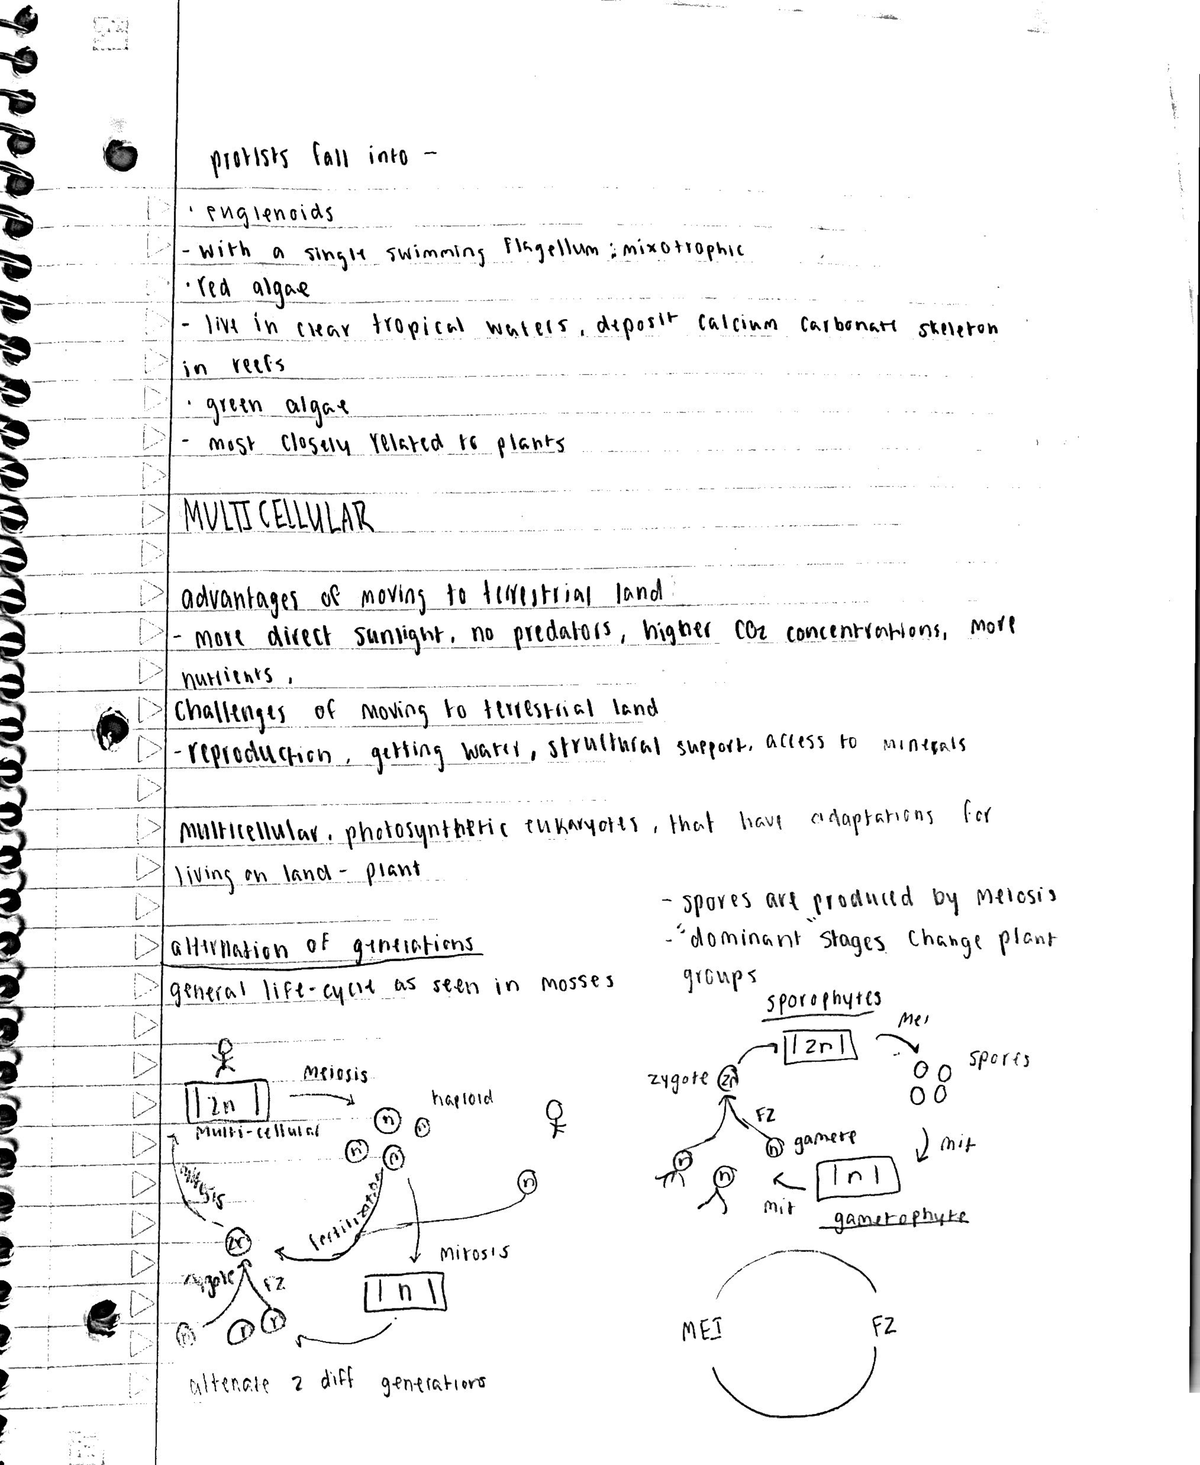 protists fall into -
· euglenoids
- with a single swimming flagellum ; mixotrophic
· red algae
- live in clear tropical waters, deposit calcium carbonate skeleton
in reefs
· green algae
- most closely related to plants
MULTICELLULAR
advantages of moving to terrestrial land
- more direct sunlight, no predators, higher CO2 concentrations, more
nutrients,
Challenges of moving to terrestrial land
- reproduction, getting water, structural support, access to minerals
multicellular, photosynthetic eukaryotes, that have adaptations for
living on land - plant
alternation of generations
general life-cycle as seen in mosses
- spores are produced by meiosis
- "dominant" stages change plant
groups
2n
multi-cellular
meiosis
haploid
n
n
n
n
n
fertilization
mitosis
2n
zygote
FZ
n
mitosis
n
altenate 2 diff generations
sporophytes
2n
mei
spores
zygote
2n
FZ
n
gamete
n
n
mit
n
gametophyte
mit
MEI
FZ